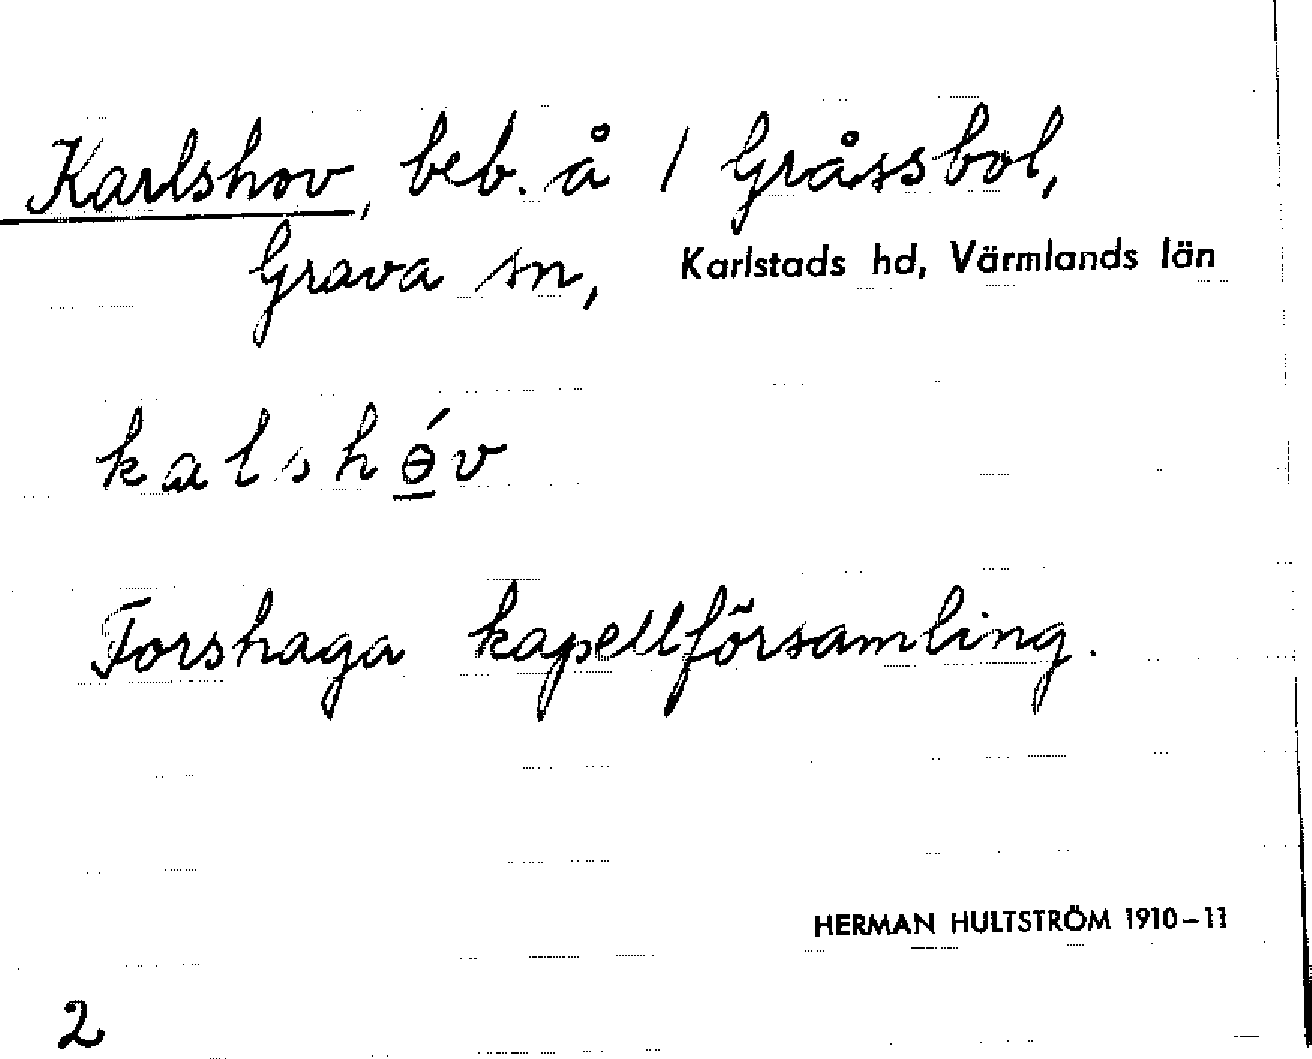 Karlshov, beb. å 1 Gråssbol,
Grava sn, Karlstads hd, Värmlands län
kalshɵ́v
Forshaga kapellförsamling.
HERMAN HULTSTRÖM 1910-11
2